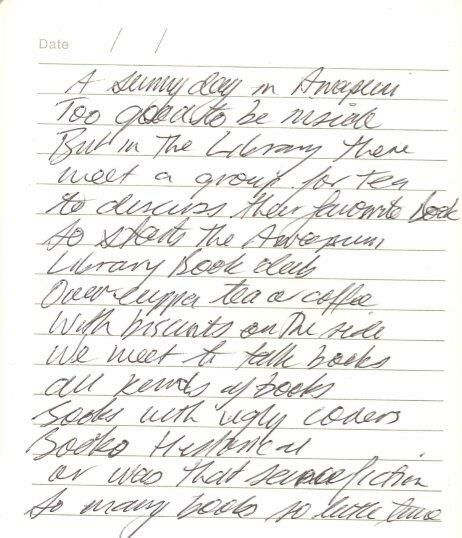 Date / /
A sunny day in Awapuni
Too good to be inside
But in The Library there
meet a group for tea
to discuss their favourite book
So starts the Awapuni
Library Book club
Over cuppa tea or coffee
With biscuits on The side
we meet to talk books
all kinds of books
books with ugly covers
Books Historical
or was that science fiction
So many books so little time